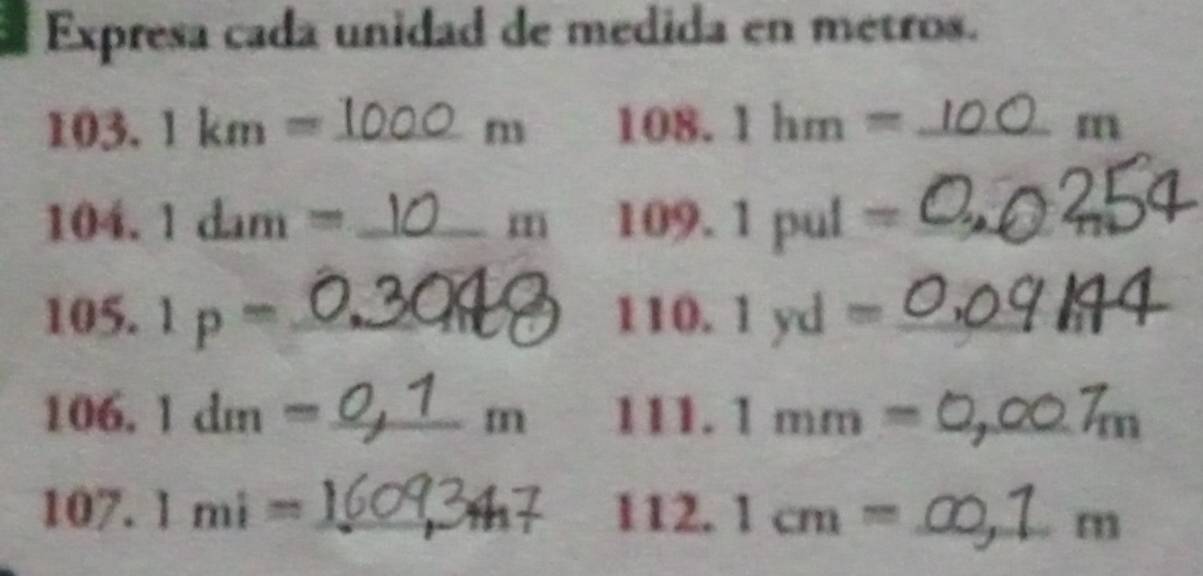 Expresa cada unidad de medida en metros.
103. 1 km = 1000 m
108. 1 hm = 100 m
104. 1 dam = 10 m
109. 1 pul = 0,0254
105. 1 p = 0.3048
110. 1 yd = 0.09144
106. 1 dm = 0,1 m
111. 1 mm = 0,001 m
107. 1 mi = 1.609,347
112. 1 cm = 00,1 m